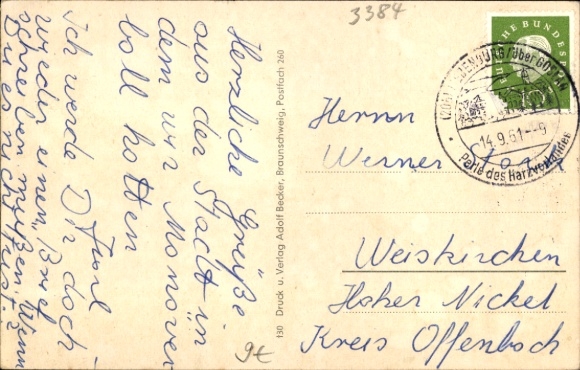 3384
Herzliche Grüße
aus der Stadt in
dem wir Manöver
ball hatten
Karl
Ich werde Dir doch
wieder einen Brief
schreiben müßen. Wenn
Du es nicht tust.?
130 Druck u. Verlag Adolf Becker, Braunschweig, Postfach 260
9€
DEUTSCHE BUNDESPOST
über GOSLAR
14.9.61-9
Perle des Harzvorlandes
Herrn
Werner
Weiskirchen
Hoher Nickel
Kreis Offenbach